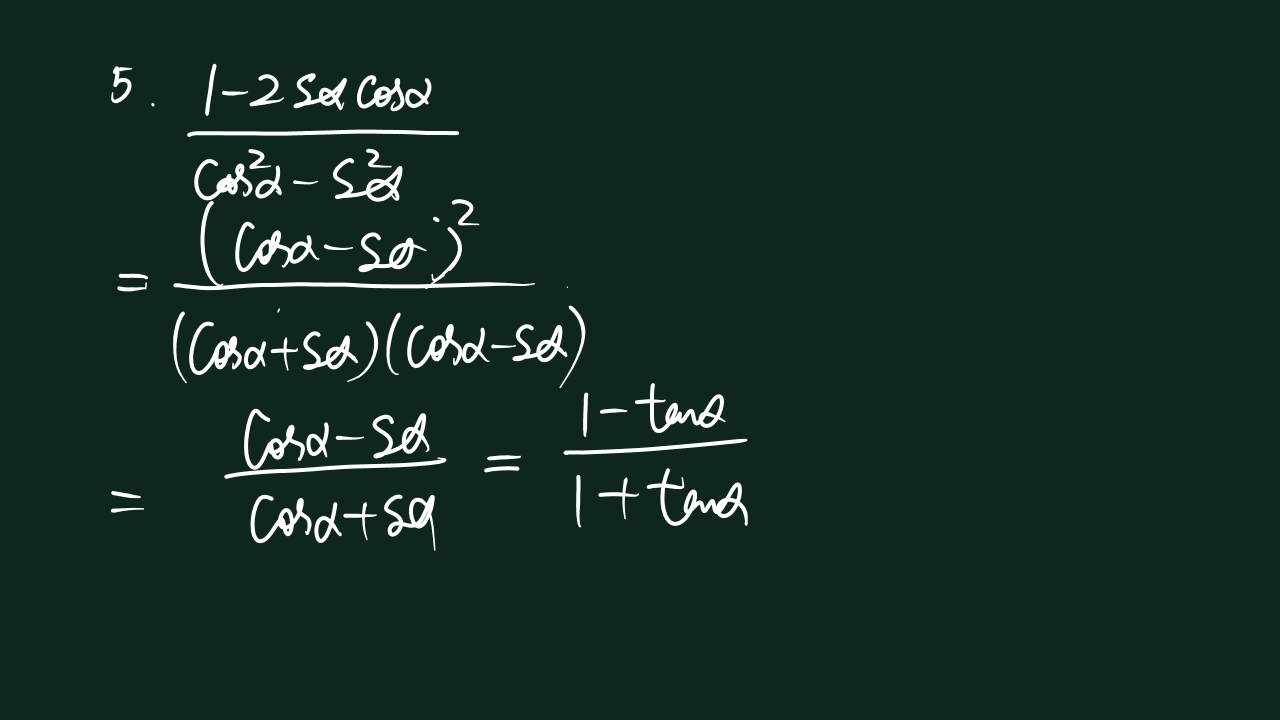 5. 1-2 Sα Cosα
Cos²α - S²α
(Cosα - Sα)²
=
(Cosα+Sα)(Cosα-Sα)
= Cosα - Sα / Cosα + Sα = 1 - tanα / 1 + tanα